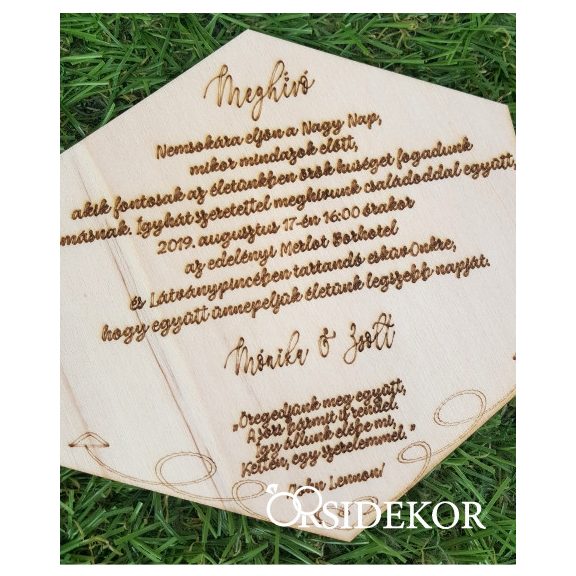 Meghívó
Nemsokára eljön a Nagy Nap,
mikor mindazok előtt,
akik fontosak az életünkben örök hűséget fogadunk
másnak. Így hát szeretettel meghívunk családoddal együtt,
2019. augusztus 17-én 16:00 órakor
az edelényi Merlot Borhotel
és Látványpincében tartandó eskűvőnkre,
hogy együtt ünnepeljük életünk legszebb napját.
Mónika & Zsolt
"Öregedjünk meg együtt,
A sors bármit is rendel.
Így állunk elébe mi,
Ketten, egy szerelemmel."
/John Lennon/
ORSIDEKOR